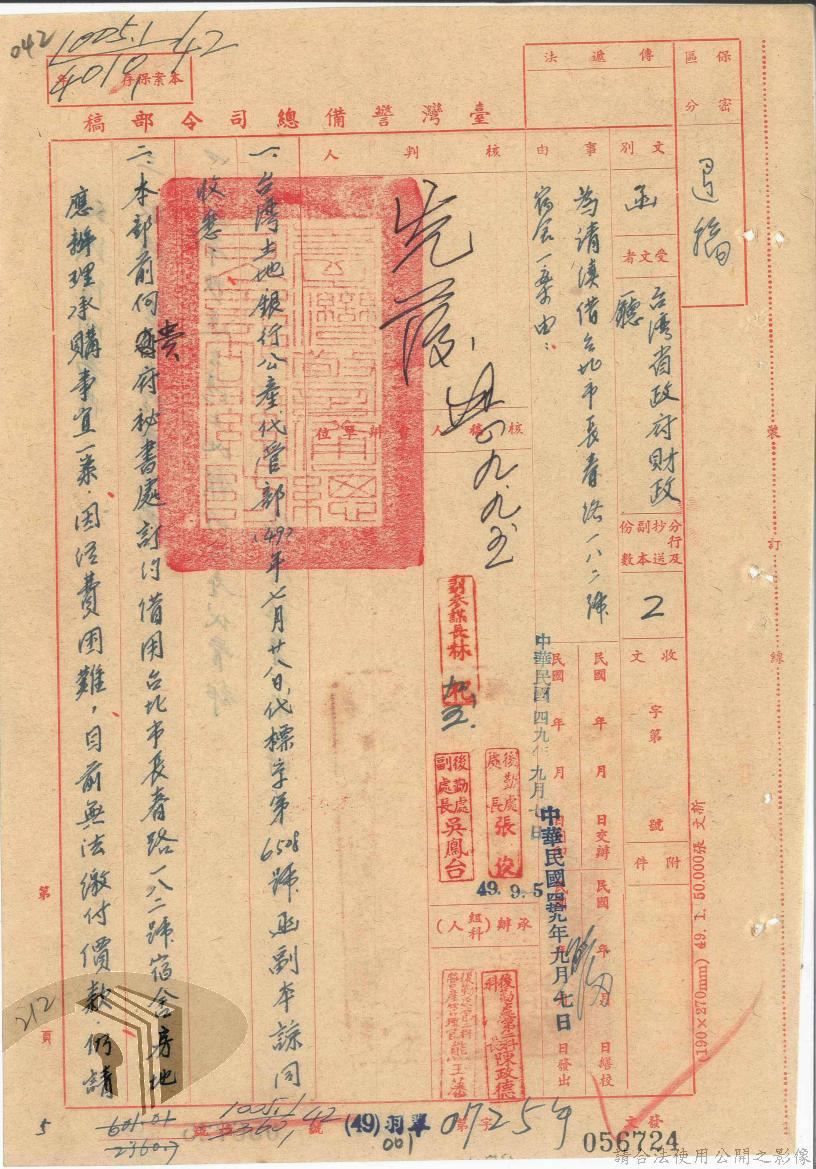 042
1005.1
4019
42
本案保存 年
臺灣警備總司令部稿
保密區分
傳遞法
文別
函
受文者
台湾省政府財政廳
分行及抄送副本份數
2
收文
字第
號
附件
事由
為請續借台北市長春路一八二號
宿舍一案由：
核判人
核稿人
會辦單位
副參謀長林
後勤處處長張俊
後勤處副處長吳鳳台
49.9.5
承辦(組科人)
後勤處第二科科長陳政德
民國 年 月 日交辦
中華民國四九年九月七日
民國 年 月 日繕校
中華民國四九年九月七日
日發出
一、台湾土地銀行公產代管部(49)年七月廿八日代標字第6508號函副本諒同
收悉
二、本部前向貴府秘書處訂約借用台北市長春路一八二號宿舍房地
應辦理承購事宜一案，因經費困難，目前無法繳付價款，仍請
裝
訂
線
(190×270mm) 49. 1. 50,000張 文新
第
212
頁
5
601.01
2360.7
1005.1
42
(49)羽單
001
字第
07259
號
發文
056724
請合法使用公開之影像